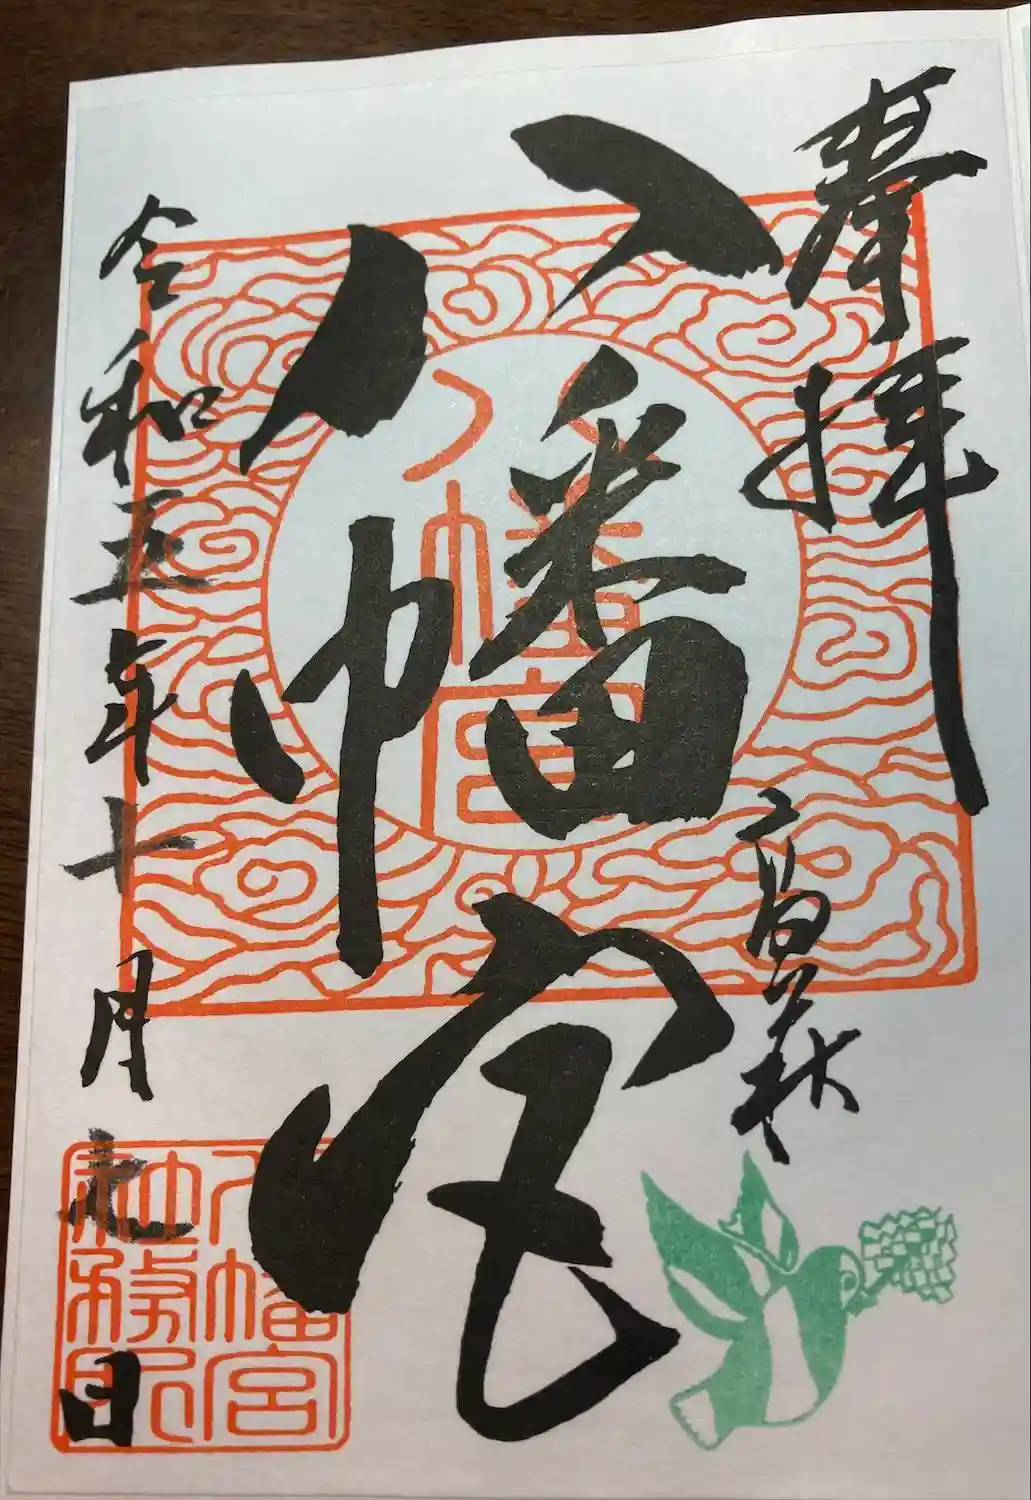 奉拝
高萩
八幡宮
八幡宮
令和五年十月
日
八幡宮
社務